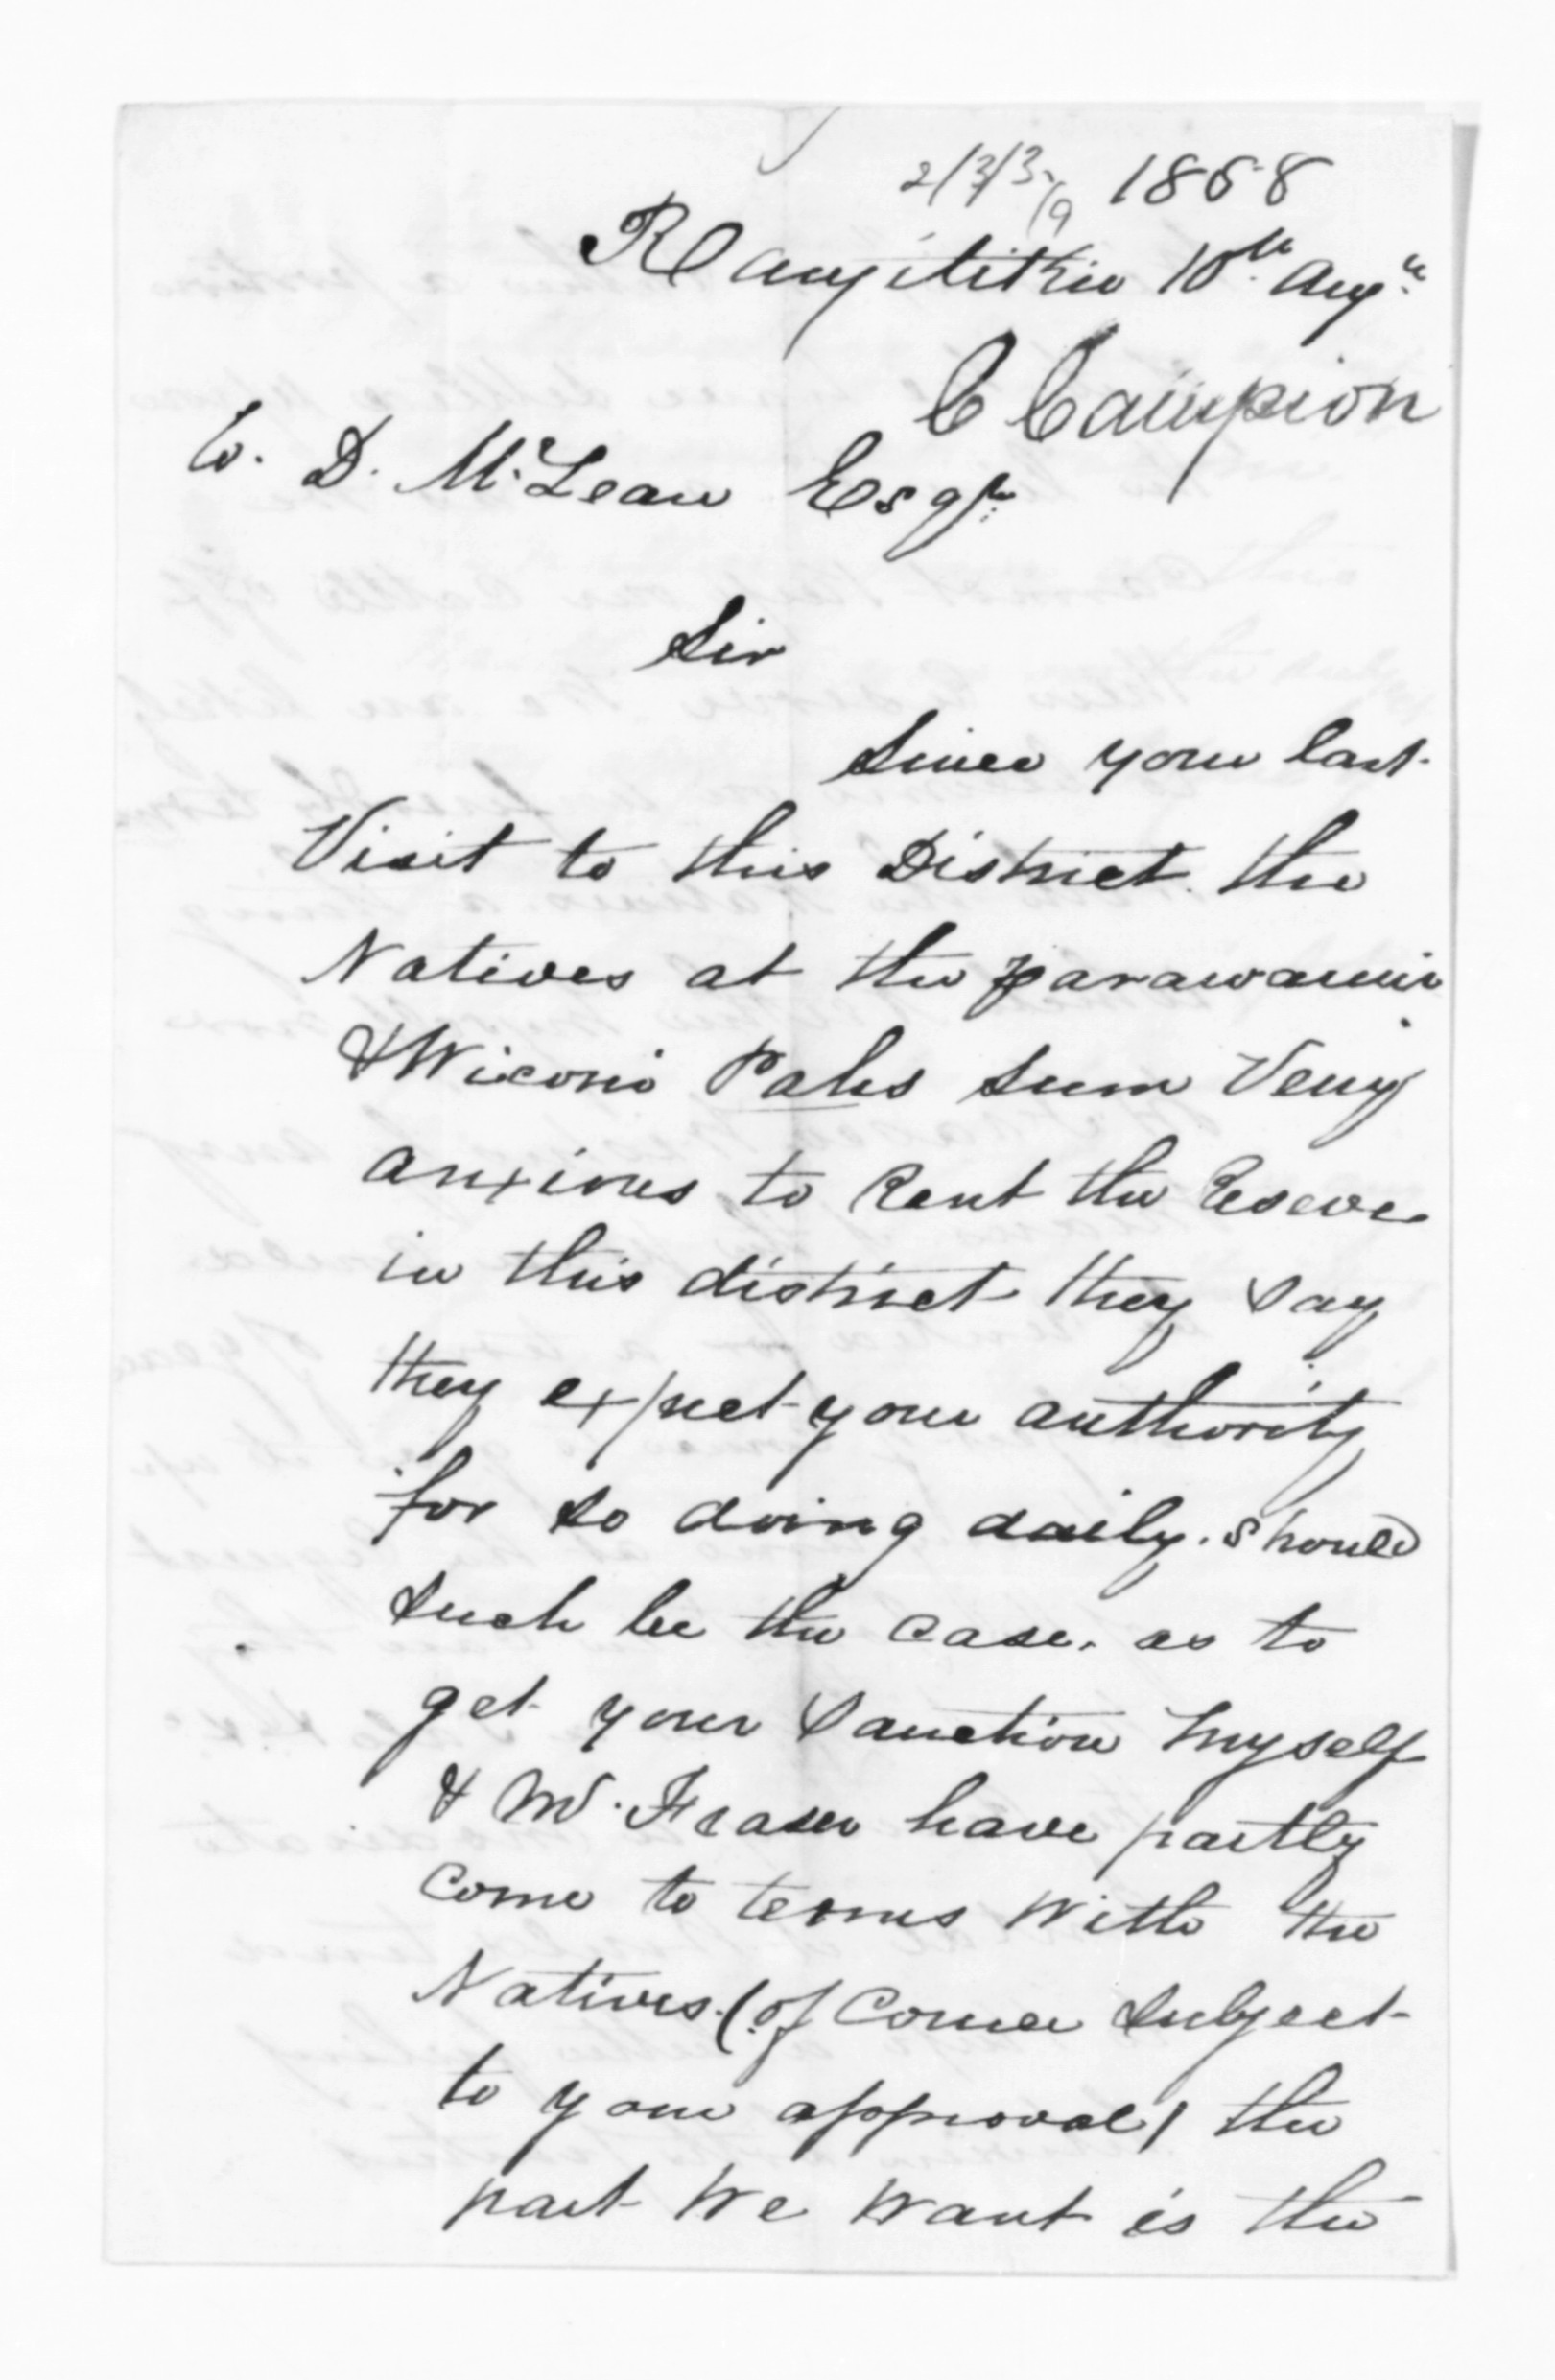 1858
Rangitikie 10th Augt
C Campion
To. D. McLean Esqr
Sir
Since your last
Visit to this District the
Natives at the parawanui
& Wixoni Pahs seem Very
anxious to Rent the Reserve
in this district they say
they expect your authority
for so doing daily. should
such be the case. as to
get your sanction myself
& Mr. Fraser have partly
come to terms with the
Natives. (of Course subject
to your approval) the
part We want is the